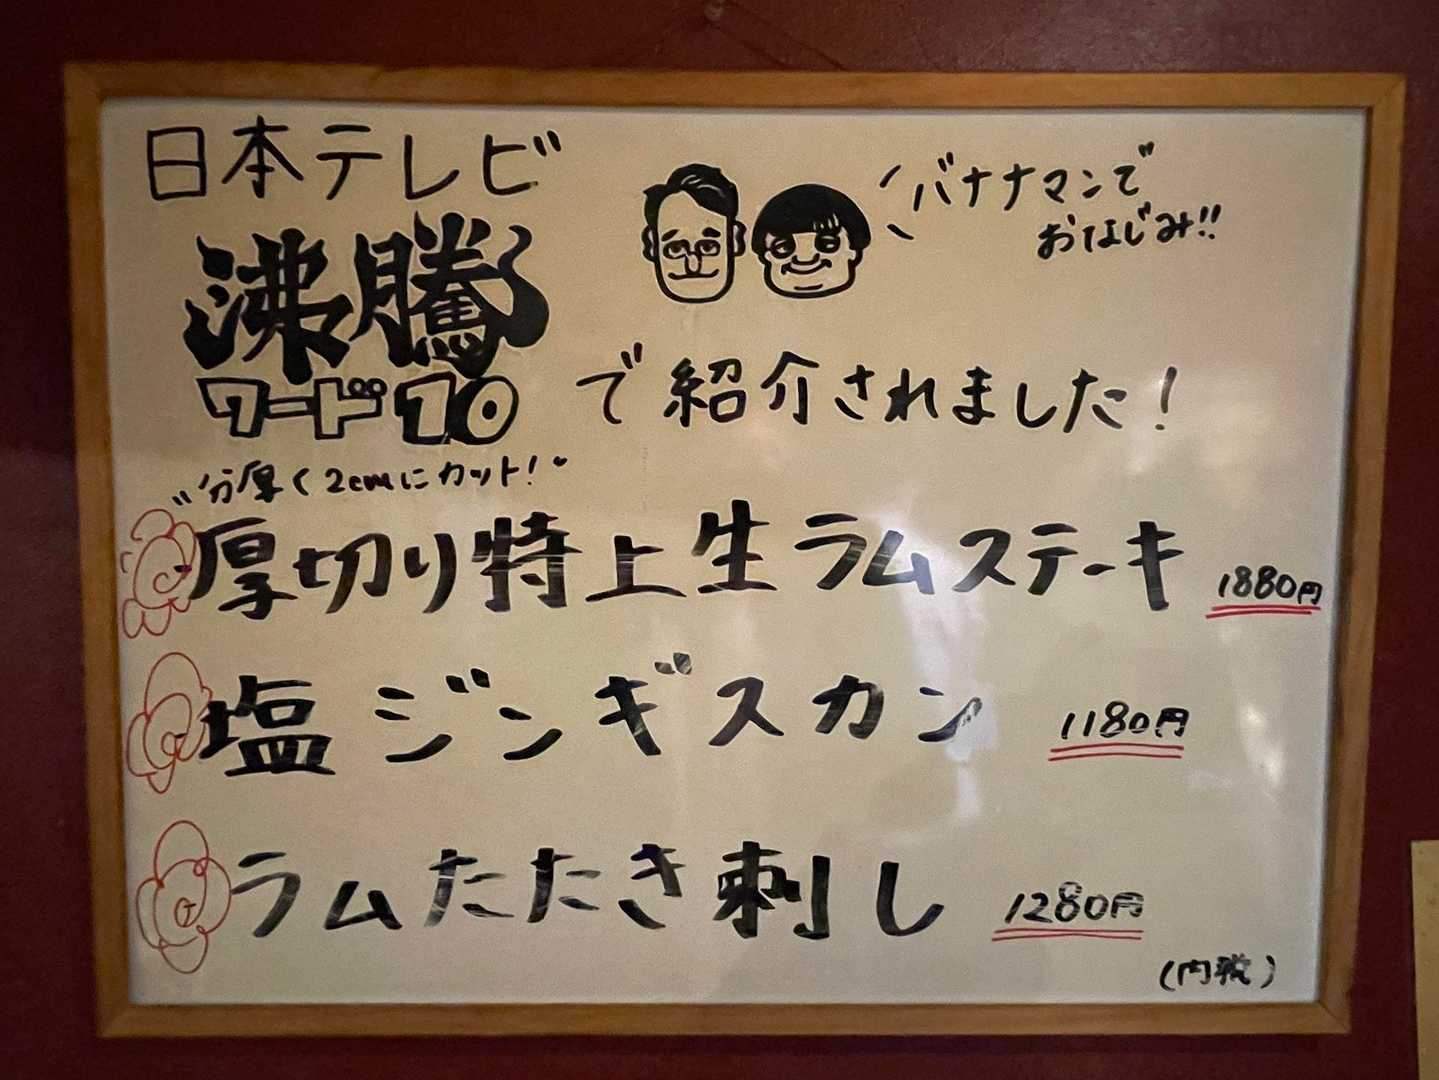 日本テレビ
バナナマンで
おなじみ!!
沸騰
ワード10 で紹介されました!
"分厚く2cmにカット!"
厚切り特上生ラムステーキ 1880円
塩ジンギスカン 1180円
ラムたたき刺し 1280円
(内税)